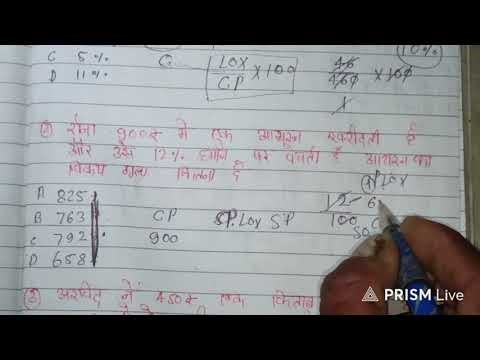 C 5%
D 11%
C.
LOX
CP × 100
46
460 × 100
10%
(2) रीना 900रू में एक आयरन खरीदती है
और उसे 12% हानि पर बेचती है आयरन का
विक्रय मूल्य कितना है
A 825
B 763
C 792
D 658
CP SP. Lox SP
900
LOX
12 6
100
50
(3) अरविंद ने 450रू एक किताब
PRISM Live